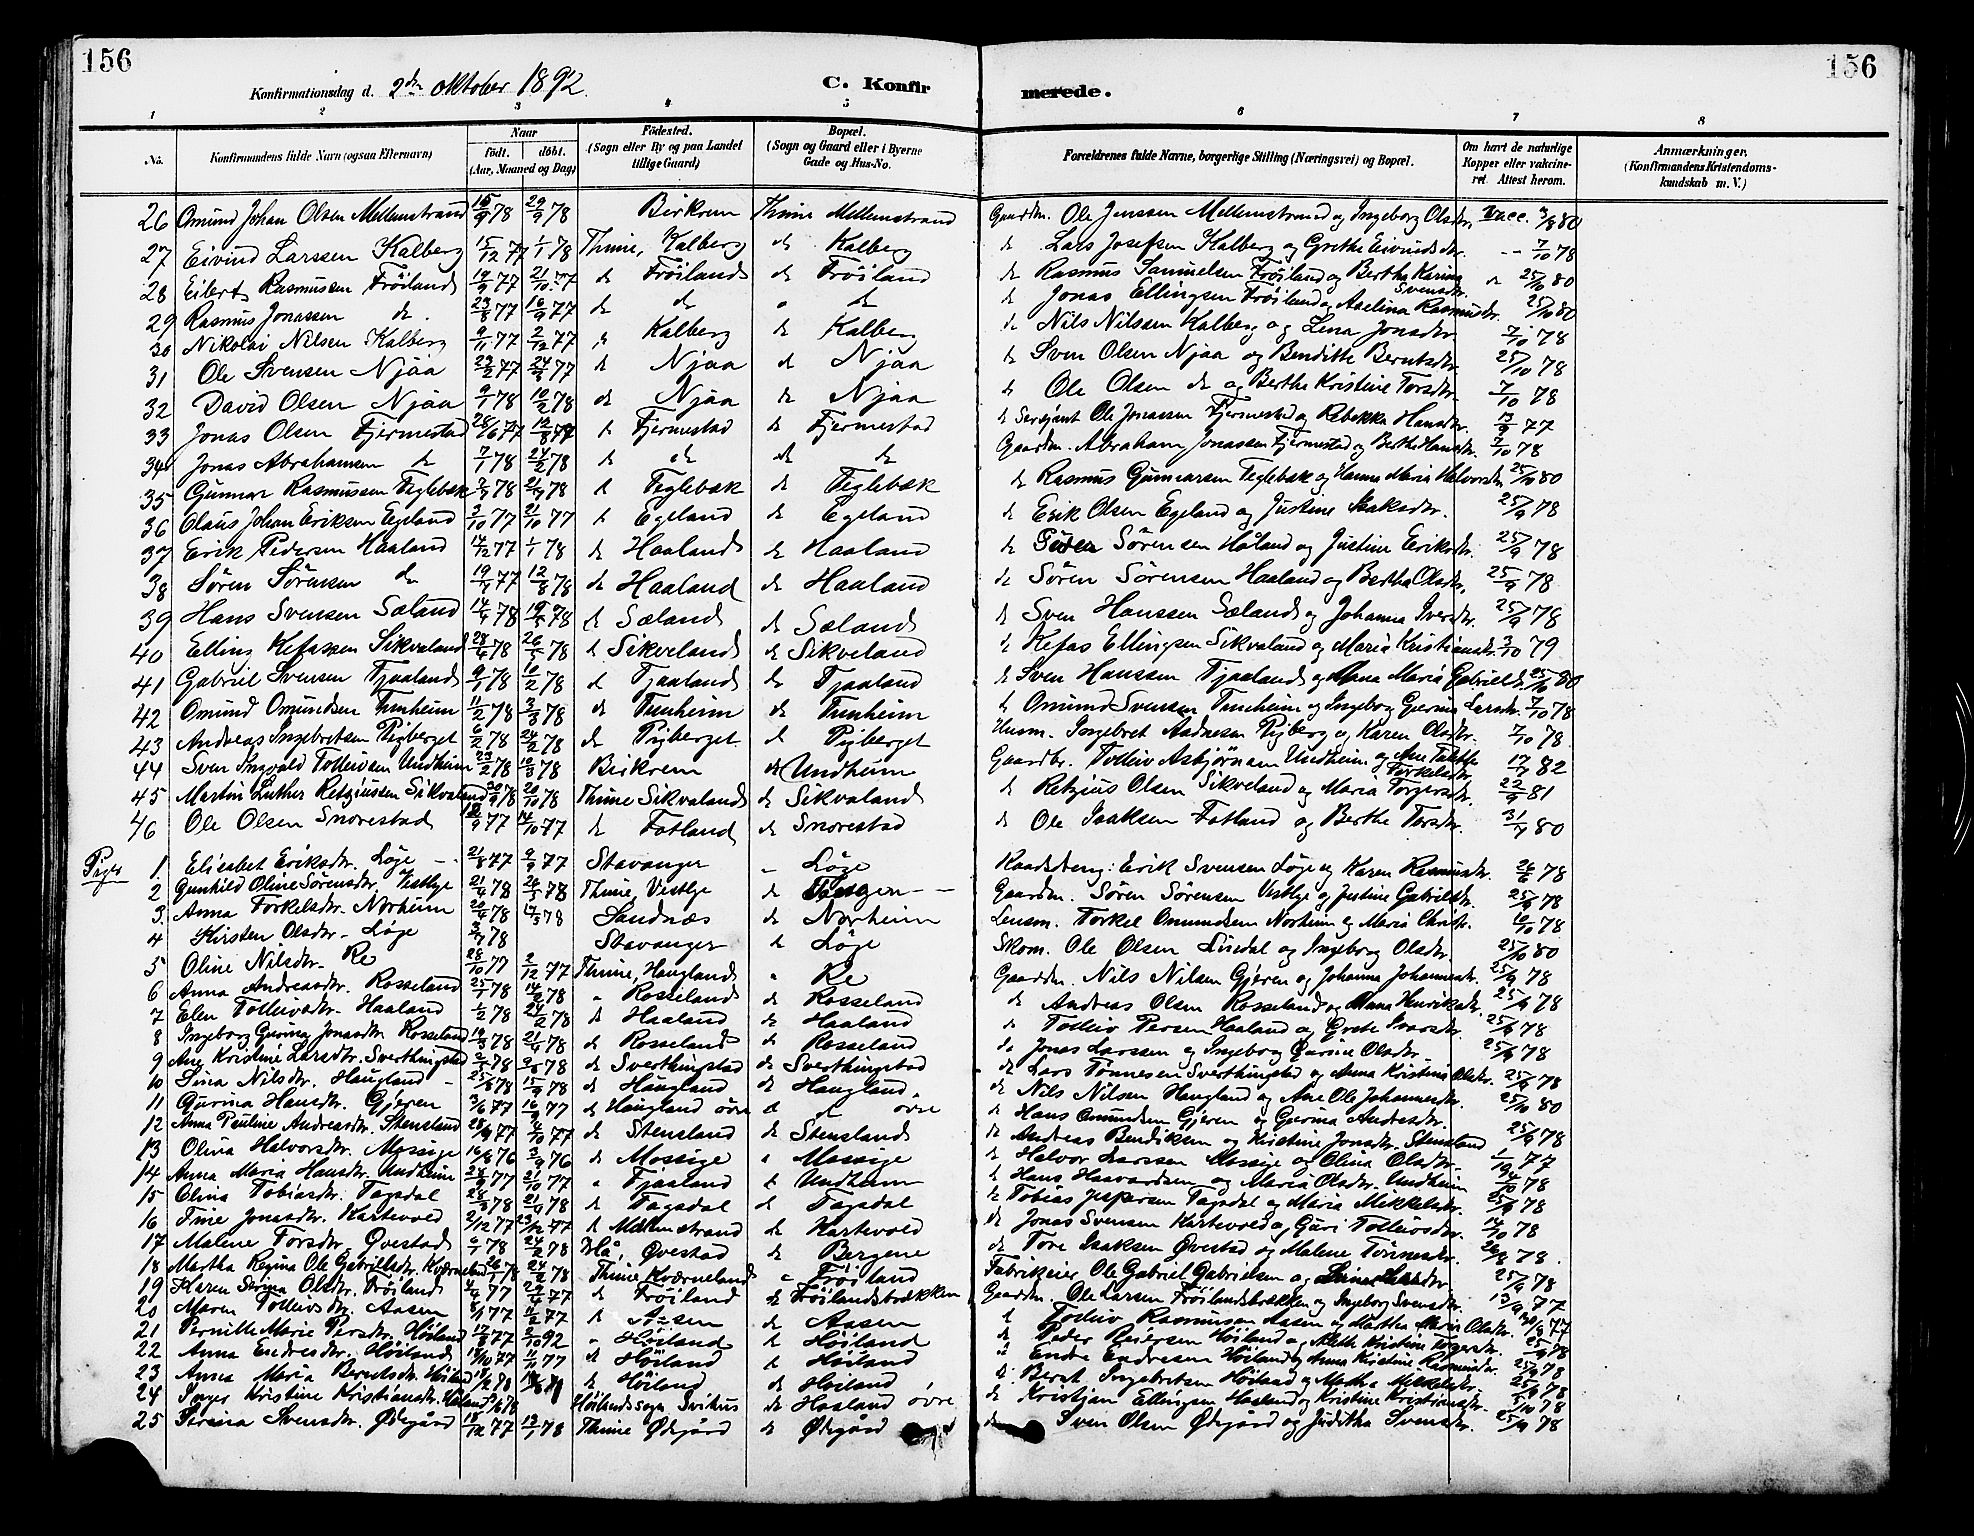 156
156
Konfirmationsdag d. 2den oktober 1892.
C. Konfir
merede.
1 2 3 4 5 6 7 8
No. Konfirmandens fulde Navn (ogsaa Efternavn) Naar født. døbt. (Aar, Maaned og Dag) Fødested. (Sogn eller By og paa Landet tillige Gaard) Bopæl. (Sogn og Gaard eller i Byerne Gade og Hus-No.
Forældrenes fulde Navne, borgerlige Stilling (Næringsvei) og Bopæl. Om havt de naturlige Kopper eller vakcineret. Attest herom. Anmærkninger. (Konfirmandens Kristendomskundskab m. V.)
26 Omund Johan Olsen Mellemstrand 78 29/9 78 Birkrem Thime Mellemstrand Gaardm. Ole Jenssen Mellemstrand og Ingeborg Olsdtr. Vacc. 80
27 Eivind Larssen Kalberg 15/12 77 1/1 78 Thime, Kalberg do Kalberg do Lars Josefsen Kalberg og Grethe Eivindsdtr. 7/10 78
28 Eilert Rasmussen Frøiland 19/9 77 21/10 77 do Frøiland do Frøiland do Rasmus Samuelsen Frøiland og Bertha Karina Svensdtr. 25/10 80
29 Rasmus Jonassen do. 23/8 77 16/9 77 do do " do do Jonas Ellingsen Frøiland og Axelina Rasmusdtr. 25/10 80
30 Nikolai Nilsen Kalberg 9/11 77 2/12 77 " Kalberg do Kalberg do Nils Nilssen Kalberg og Lena Jonasdtr. 7/10 78
31 Ole Svensen Njaa 23/2 77 24/3 77 do Njaa do Njaa do Sven Olsen Njaa og Benditte Berntsdtr. 25/10 78
32 David Olsen Njaa 9/1 78 10/2 78 do Njaa do Njaa do Ole Olsen do og Berthe Kristine Torsdtr. 7/10 78
33 Jonas Olsen Fjermestad 28/6 77 12/8 77 do Fjermestad do Fjermestad do Serdjant Ole Jonassen Fjermestad og Rebekka Hansdtr. 13/9 77
34 Jonas Abrahamsen do 7/1 78 24/2 78 do do do do Gaardm. Abraham Jonassen Fjermestad og Berthe Hansdtr. 7/10 78
35 Gunnar Rasmussen Teglebæk 78 21/4 78 do Teglebæk do Teglebæk do Rasmus Gunnarsen Teglebæk og Hanna Maria Halvorsdtr 25/10 80
36 Olaus Johan Eriksen Egeland 3/10 77 21/10 77 do Egeland do Egeland do Erik Olsen Egeland og Justine Isaksdtr. 25/9 78
37 Erik Pedersen Haaland 14/12 77 1/1 78 do Haaland do Haaland do Peder Sörensen Håland og Justine Eriksdtr. 25/9 78
38 Søren Sørensen do 19/7 77 12/8 78 do Haaland do Haaland do Søren Sørensen Haaland og Bertha Olsdtr. 25/9 78
39 Hans Svensen Sæland 14/4 78 78 do Sæland do Sæland do Sven Hanssen Sæland og Johanna Iversdtr. 25/9 78
40 Elling Kefassen Sikvaland 28/4 78 26/5 78 do Sikveland do Sikveland do Kefas Ellingsen Sikvaland og Maria Kristiansdtr. 3/10 79
41 Gabriel Svensen Tjaaland 9/1 78 10/2 78 do Tjaaland do Tjaaland do Sven Hanssen Tjaaland og Anna Maria Gabrielsdtr. 25/10 80
42 Omund Omundsen Tunheim 11/2 78 3/3 78 do Tunheim do Tunheim do Omund Svensen Tunheim og Ingeborg Gurina Larsdtr. 7/10 78
43 Andreas Ingebretsen Pigberget 6/2 78 24/2 78 do Pigberget do Pigberget Husm. Ingebret Aadnesen Pigberg og Karen Olsdtr. 7/10 78
44 Sven Ingvald Tolleivsen Undheim 23/2 78 10/3 78 Birkrem do Undheim Gaardbr. Tolleiv Asbjørnsen Undheim og Ane Talette Torkelsdtr. 17/7 82
45 Martin Luther Retziussen Sikvaland 30/9 78 20/10 78 Thime Sikvaland do Sikvaland do Retzius Olsen Sikveland og Maria Torgersdtr. 22/9 81
46 Ole Olsen Snorestad 77 14/10 77 do Fotland do Snorestad do Ole Isaksen Fotland og Berthe Torsdtr. 31/7 80
Piger
1. Elisabet Eriksdtr. Løge 21/8 77 9/9 77 Stavanger " Løge Erik Svensen Løge og Karen Rasmusdtr. 26/6 78
2 Gunhild Oline Sørensdtr. Vestlye 21/4 78 26/5 78 Thime, Vestlye do Gaardm. Søren Sørensen Vestlye og Justine Gabrielsdtr. 25/9 78
3. Anna Torkelsdtr. Norheim 20/4 78 78 Sandnæs do Norheim Lensm. Torkel Omundsen Norheim og Maria 10/10 78
4 Kirsten Olsdtr. Løge 78 Stavanger do Løge Skom. Ole Olsen Lindal og Ingeborg Olsdtr. 25/10 80
5 Oline Nilsdtr. Re 28/10 77 2/12 77 Thime, Haugland " Re Gaardm. Nils Nilsen Gjeren og Johanna Johannesdtr. 25/9 78
6 Anna Andreasdtr. Rosseland 25/1 78 14/2 78 " Rosseland do Rosseland do Andreas Olsen Rosseland og Anna Henriksdtr. 25/9 78
7 Elen Tolleivsdtr. Haaland 1/2 78 24/2 78 do Haaland do Haaland do Tolleiv Persen Haaland og Grete Ivarsdtr. 25/9 78
8 Ingeborg Gurina Jonasdtr. Rosseland 19/3 78 21/4 78 do Rosseland do Rosseland do Jonas Larssen og Ingeborg Gurine Olsdtr. 25/9 78
9 Ane Kristine Larsdtr. Sverthingstad 78 78 do Sverthingstad do Sverthingstad do Lars Tønnesen Sverthingstad og Anna Kristina Olsdtr. 25/9 78
10 Sina Nilsdtr. Haugland 78 15/9 78 do Haugland do Haugland do Nils Nilsen Haugland og Ane Ole Johannesdtr. 25/10 80
11 Gurina Hansdtr. Gjeren 3/6 77 16/9 77 do Haugland øvre do do øvre do Hans Omundsen Gjeren og Gurina Andersdtr.
12 Anna Pauline Andreasdtr. Stensland 28/9 77 4/10 77 do Stensland do Stensland do Andreas Bendiksen og Kristine Jonsdtr. Stensland 25/9 78
13 Olivia Halvorsdtr. Mossige 16/8 76 3/9 76 do Mossige " Mossige do Halvor Larssen Mossige og Olina Olsdtr. 77
14 Anna Maria Hansdtr. Undheim 24/9 77 21/10 77 " Tjaaland do Undheim do Hans Haavardsen og Maria Olsdtr. Undheim 78
15 Olina Tobiasdtr. Tagsdal 28/3 78 21/4 78 do Tagsdal do Tagsdal do Tobias Jespersen Tagsdal og Maria Mikkelsdtr. 25/9 78
16 Tine Jonasdtr. Kartevold 2/12 77 23/12 77 do Mellemstrand do Kartevold do Jonas Svensen Kartevold og Guri Tolleivsdtr. 14/10 78
17 Malene Torsdtr. Qvestad 6/1 78 24/2 78 Haa, Øvestad do Bergene do Tore Isaksen Øvestad og Malene Tønnesdtr. 26/8 78.
18 Martha Regina Ole Gabrielsdtr. Kværneland 26/1 78 24/2 78 Thime Kværneland " Frøiland Fabrikeier Ole Gabriel Gabrielsen og 25/9 78
19 Karen Serina Olsdtr. Frøiland 77 77 do Frøiland do Frøilandsbrækken Gaardm. Ole Larsen Frøilandsbrækken og Ingeborg Svensdtr. 13/9 77
20 Maren Tolleivsdtr. Aasen 8/1 77 11/2 77 do Aasen do Aasen do Tolleiv Rasmussen Aasen og Martha Maria Olsdtr. 77
21 Pernille Marie Persdtr. Høiland 77 2/10 92 " Høiland do Høiland do Peder Høiland og Mette Kristine Torgersdtr. 25/9 78
22 Anna Endresdtr. Høiland 77 77 do Høiland do Høiland " Endre Endresen Høiland og Anna Kristine Rasmusdtr. 25/9 78
23 Anna Maria Berntsdtr. Høiland 78 do Høiland do Høiland do Bernt Ingebretsen Høiland og Martha Mikkelsdtr. 25/9 78
24 Inger Kristine Kristiansdtr. Haaland Høilands sogn, do Haaland øvre do Kristjan Ellingsen Haaland og Kristine Kristiansdtr. 78
25 Serina Svensdtr. Ødegård 18/12 77 13/1 78 Thime Ødegård do Ødegård do Sven Olsen Ødegård og Juditha Svensdtr. 25/9 78